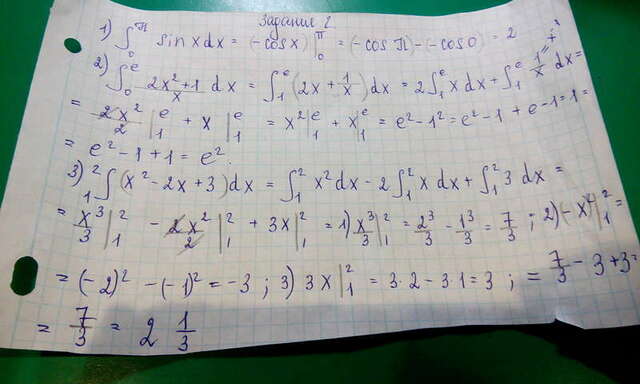 Задание 2
1) ∫₀^π sin x dx = (-cos x) |₀^π = (-cos π) - (-cos 0) = 2
2) ∫₀^e (2x²+1)/x dx = ∫₁^e (2x + 1/x) dx = 2∫₁^e x dx + ∫₁^e 1/x dx =
= 2x²/2 |₁^e + x |₁^e = x² |₁^e + x |₁^e = e² - 1² = e² - 1 + e - 1 = 1 =
= e² - 1 + 1 = e².
3) ₁²∫ (x² - 2x + 3) dx = ∫₁² x² dx - 2∫₁² x dx + ∫₁² 3 dx =
= x³/3 |₁² - 2x²/2 |₁² + 3x |₁² = 1) x³/3 |₁² = 2³/3 - 1³/3 = 7/3 ; 2) (-x² |₁² =
= (-2)² - (-1)² = -3 ; 3) 3x |₁² = 3·2 - 3·1 = 3 ; = 7/3 - 3 + 3 =
= 7/3 = 2 1/3